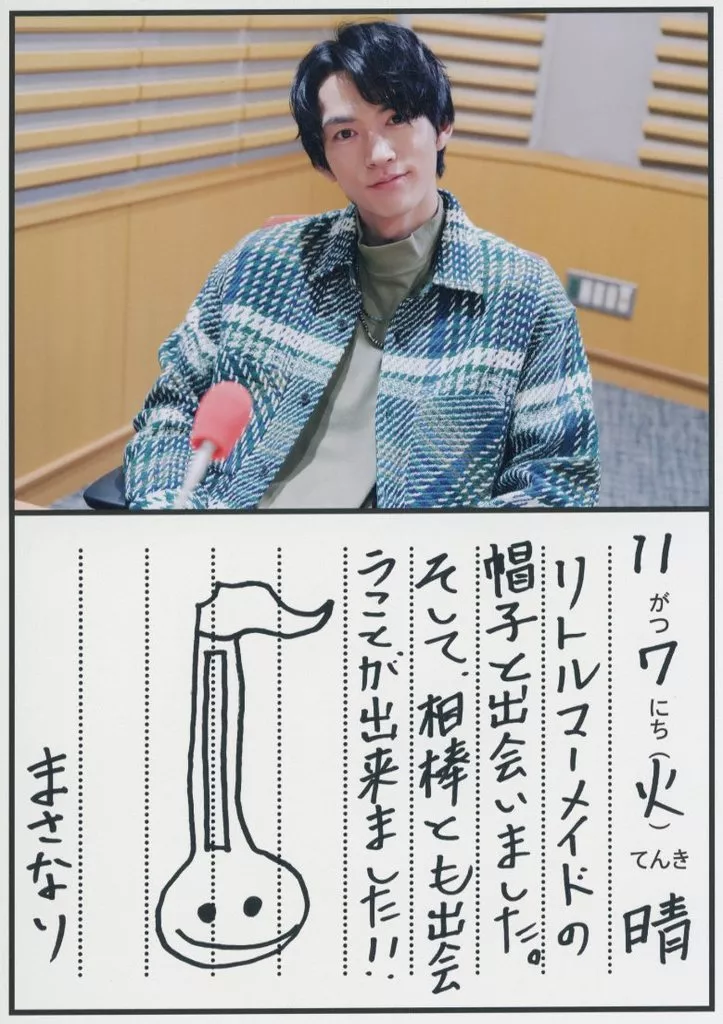 11がつ7にち(火)てんき 晴
リトルマーメイドの
帽子と出会いました。
そして、相棒とも出会
うことが出来ました!!
まさなり